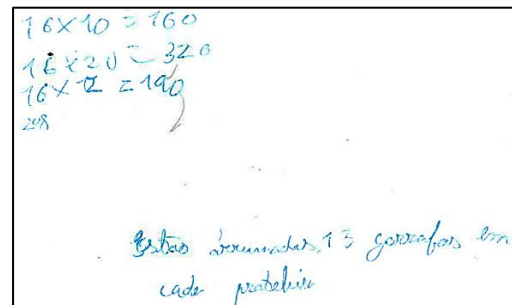 16×10 = 160
16×20 = 320
16×12 = 190
208
Estão arrumadas 13 garrafas em
cada prateleira